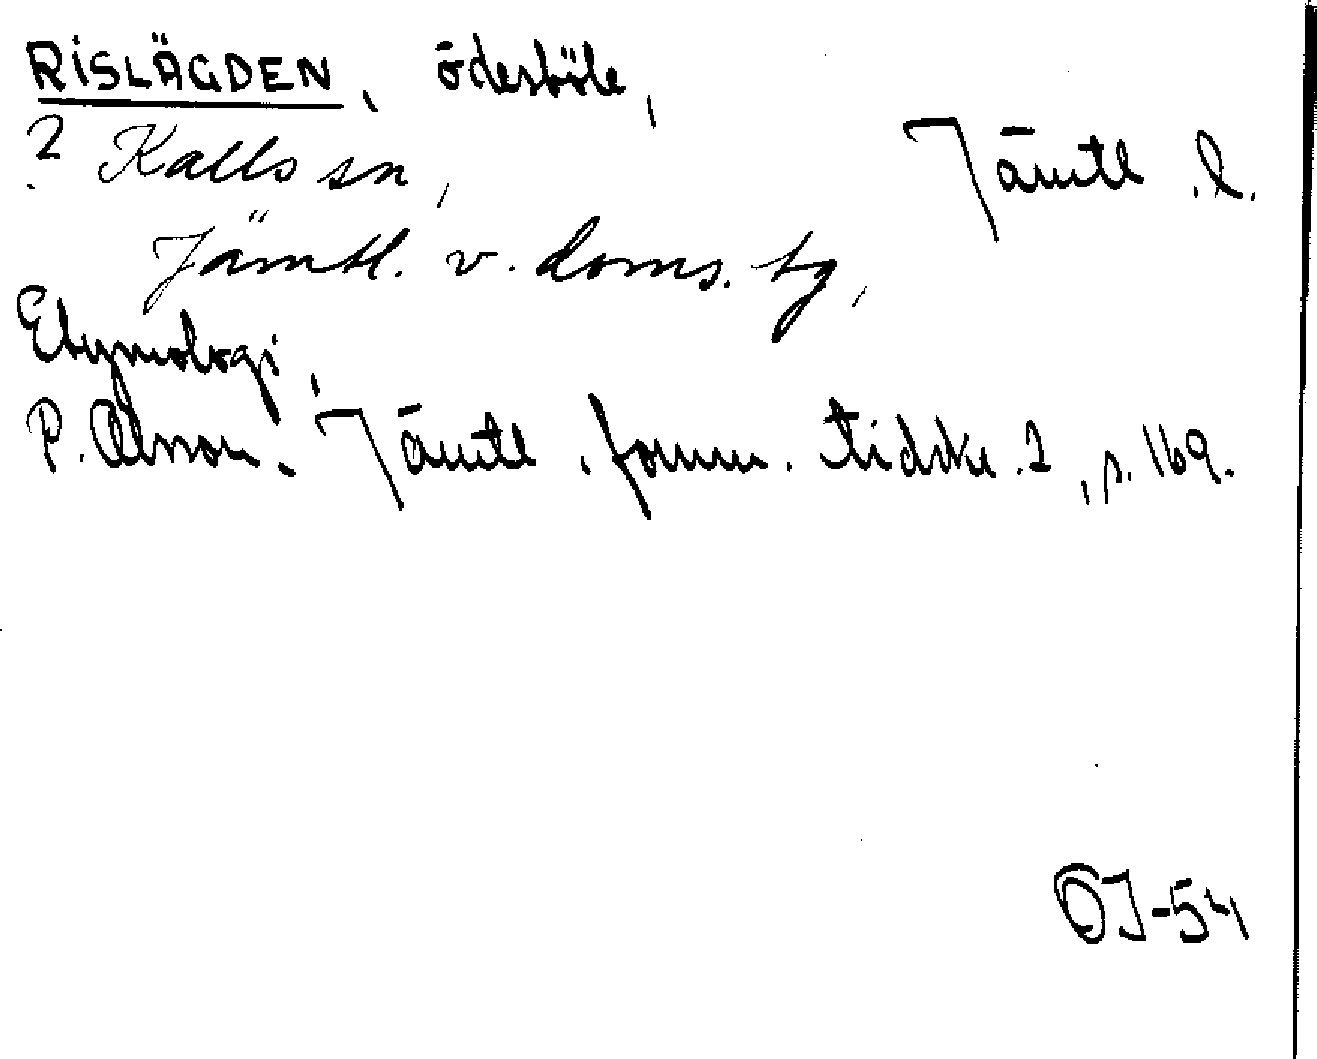 RISLÄGDEN, ödesböle,
? Kalls sn, Jämtl. l.
Jämtl. v. doms. tg,
Etymologi,
P. Olsson. Jämtl. fornm. tidskr. 2, s. 169.
OJ-54